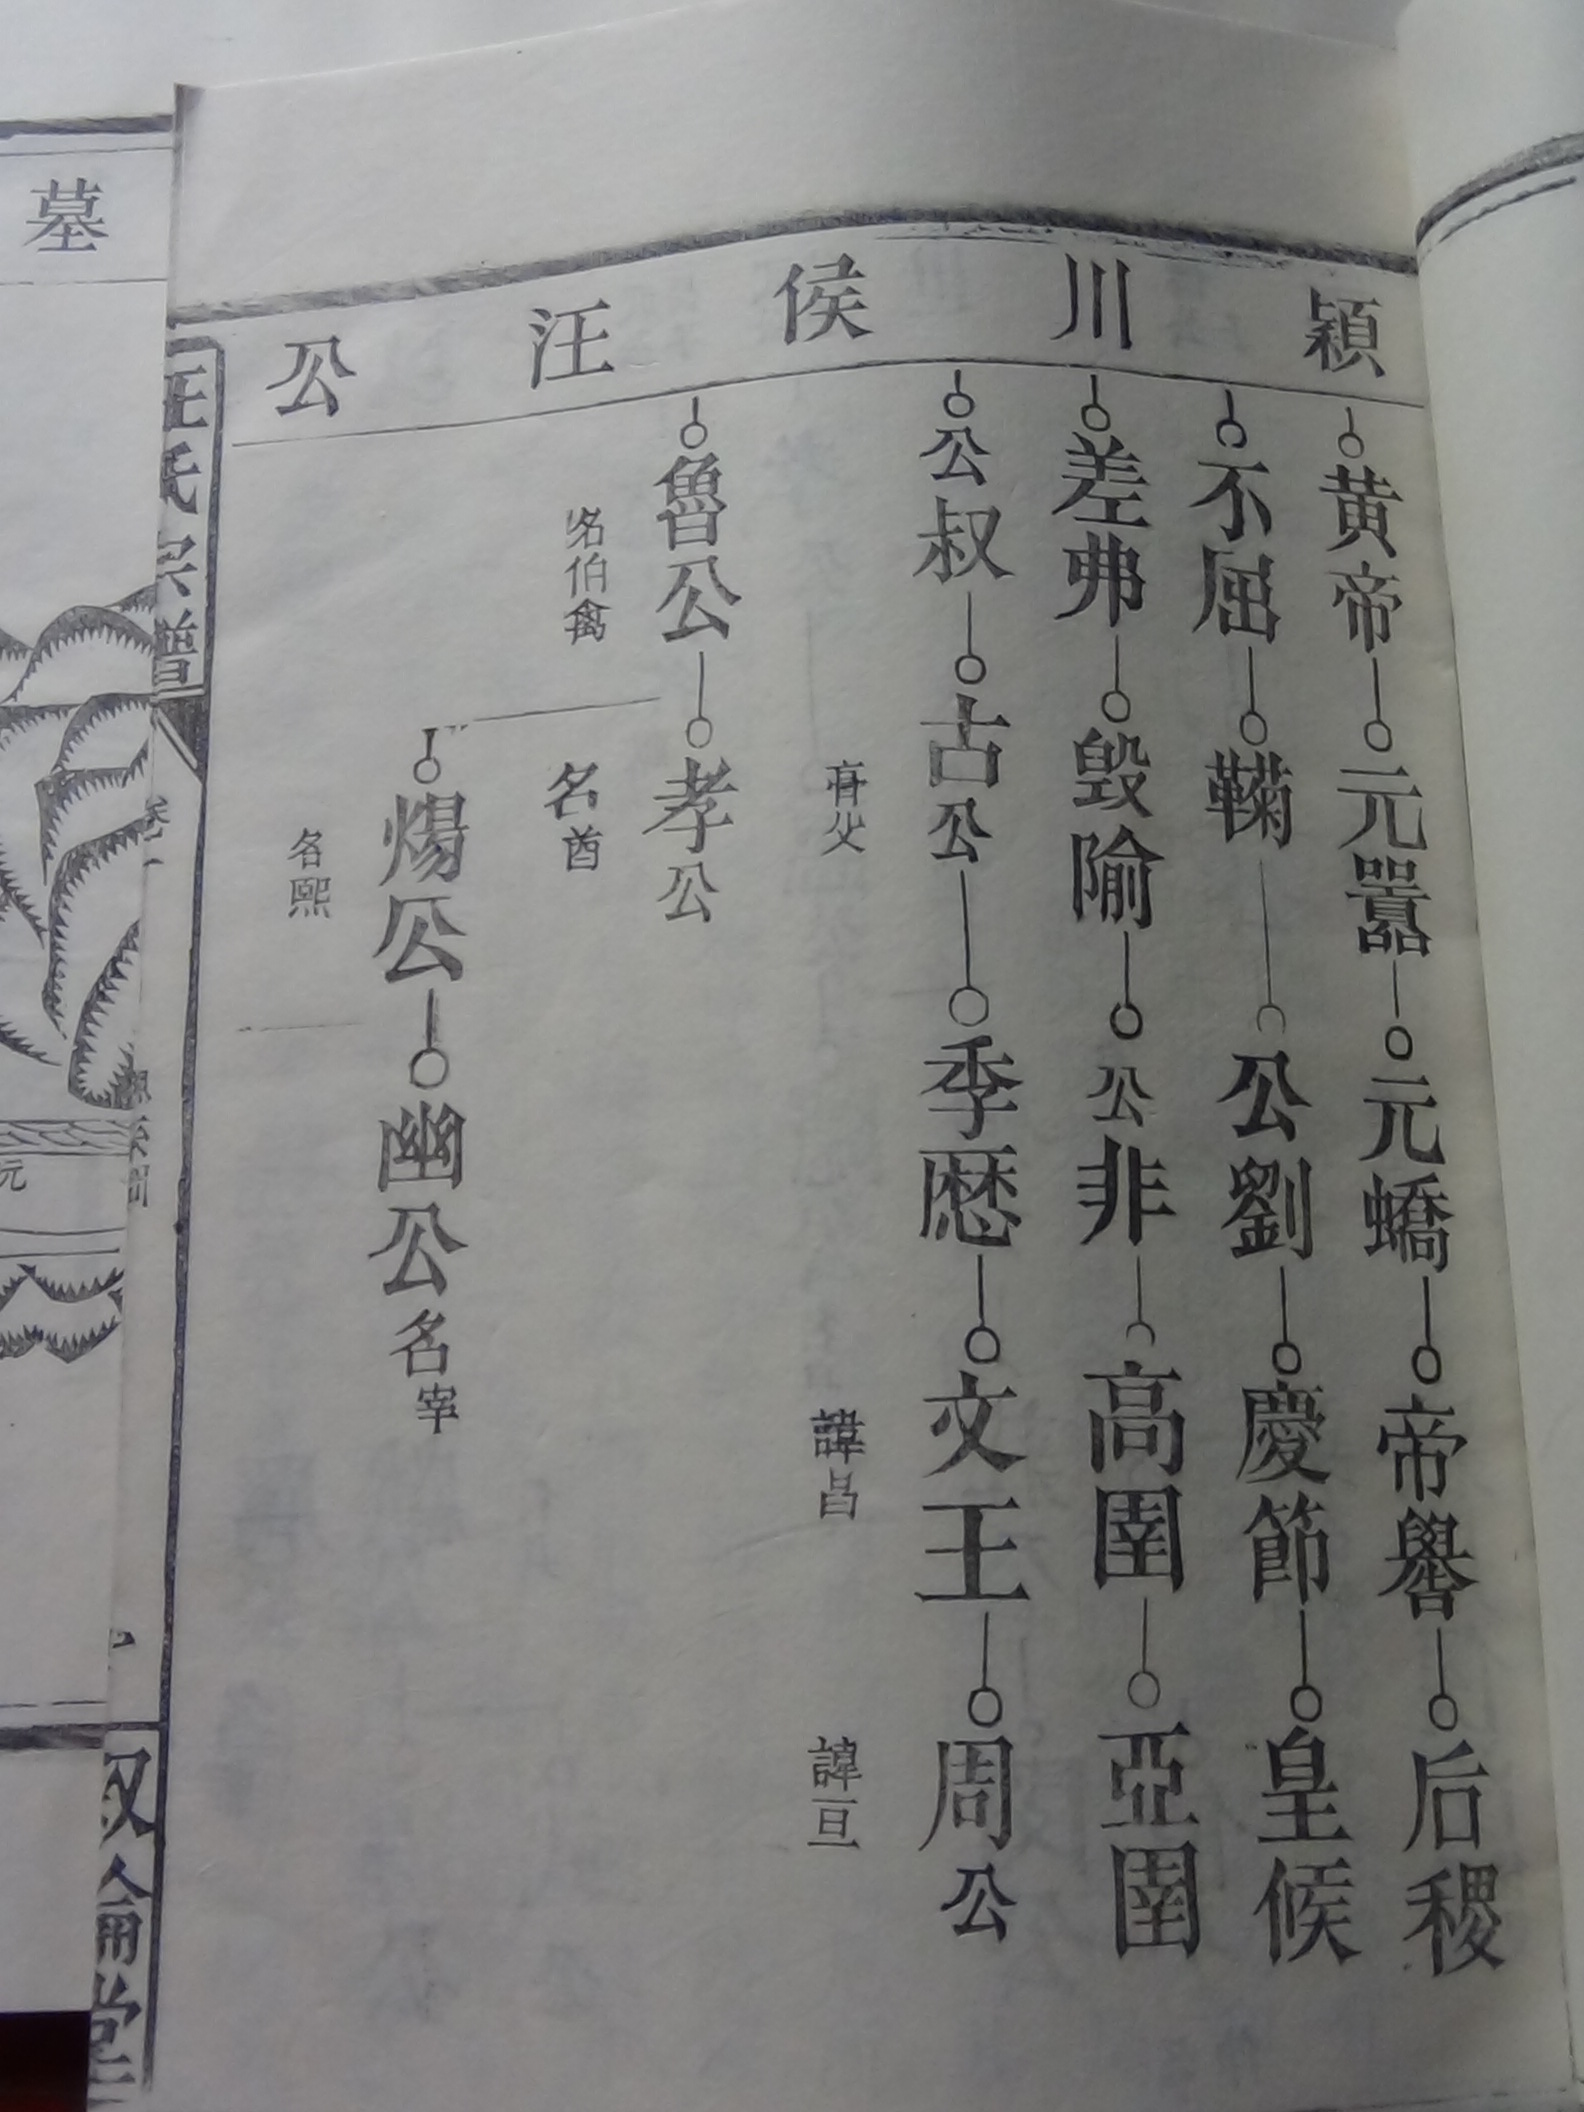 穎川侯汪公
黃帝 元囂 元蟜 帝嚳 后稷
不屈 鞠 公劉 慶節 皇候
差弗 毀隃 公非 高圉 亞圉
公叔 古公 季歷 文王 周公
亶父 諱昌 諱亘
魯公 孝公
名伯禽 名酋
煬公 幽公名宰
名熙
汪氏宗譜
卷一
倫堂
墓
元